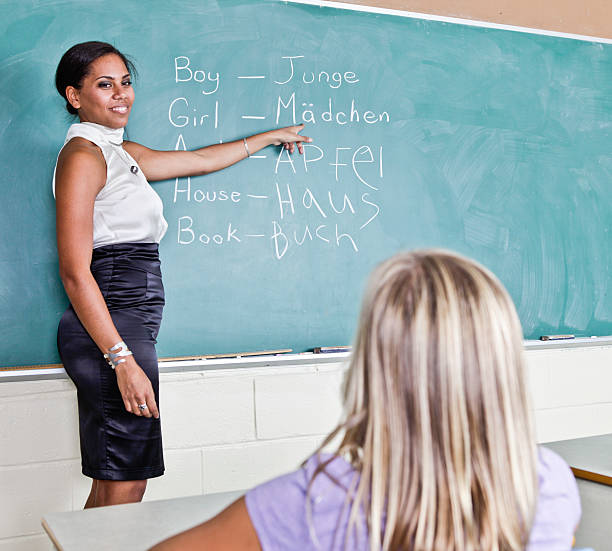 Boy — Junge
Girl — Mädchen
Apfel
House — Haus
Book — Buch